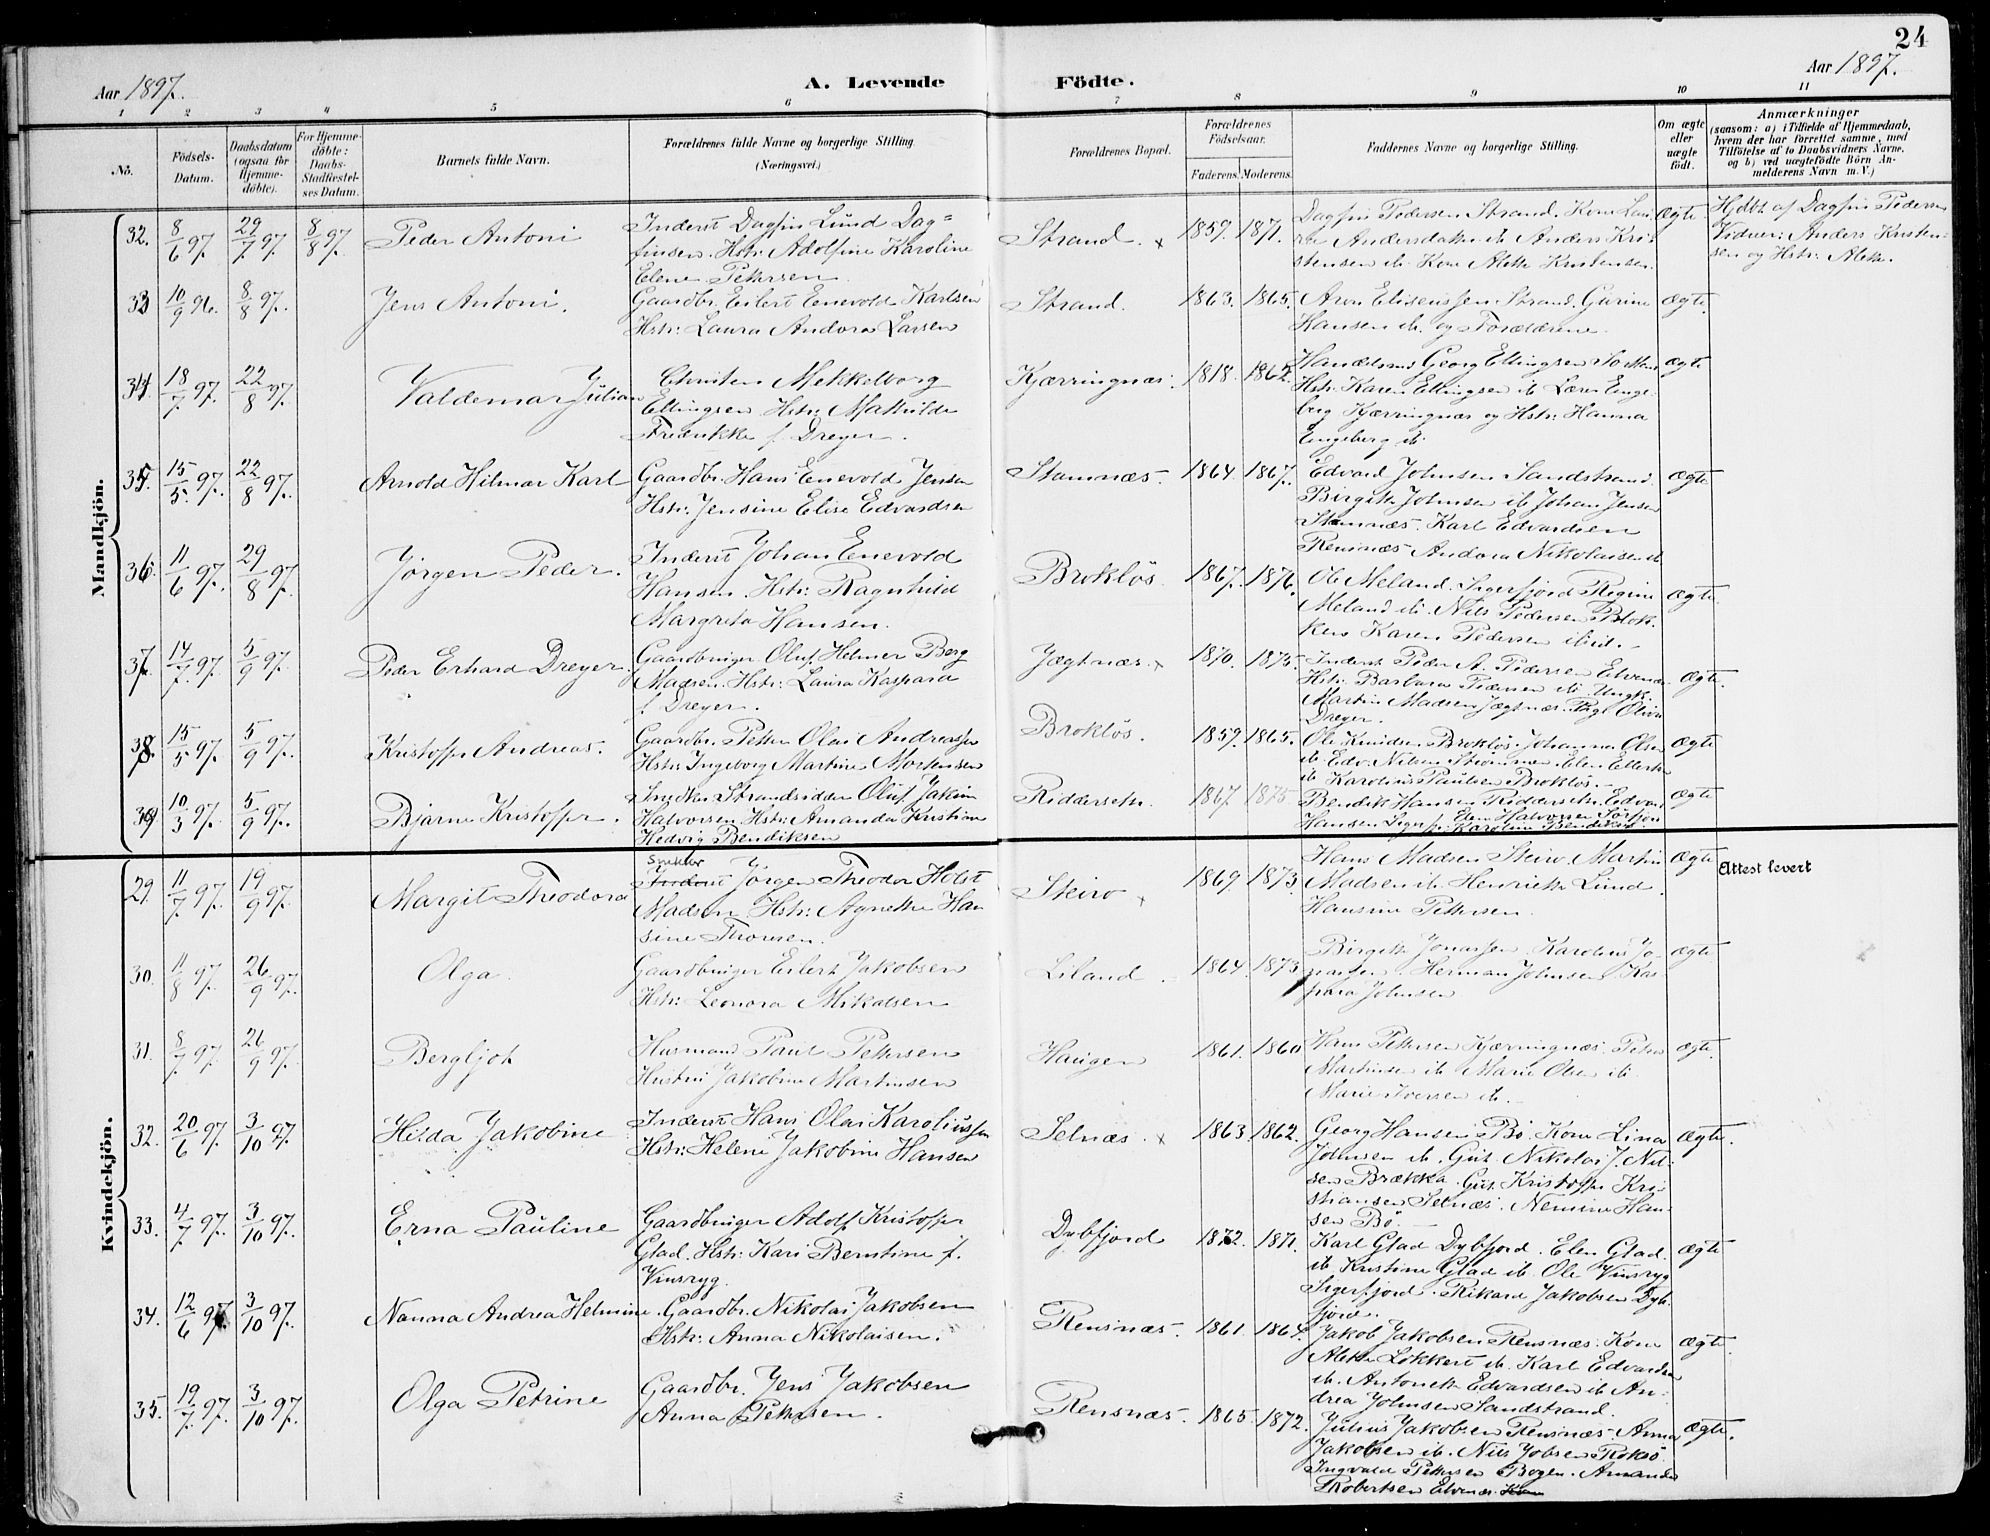 24
Aar 1897.
A. Levende Födte.
Aar 1897.
1 2 3 4 5 6 7 8 9 10 11
No.
Födsels-Datum.
Daabsdatum (ogsaa for Hjemme-döbte).
For Hjemme-döbte: Daabs-Stadfestel-ses Datum.
Barnets fulde Navn.
Forældrenes fulde Navne og borgerlige Stilling. (Næringsvei.)
Forældrenes Bopæl.
Forældrenes Födselsaar.
Faderens. Moderens.
Faddernes Navne og borgerlige Stilling.
Om ægte eller uægte födt.
Anmærkninger
(saasom: a) i Tilfælde af Hjemmedaab, hvem der har forrettet samme, med Tilföielse af to Daabsvidners Navne, og b) ved uægtefödte Börn An-melderens Navn m. V.)
Mandkjön.
32. 8/6 97. 29/7 97. 8/8 97. Peder Antoni
Inderst Dagfin Lund Dag=
finsen. Hstr: Adolfine Karoline
Elene Pettersen
Strand. x 1859. 1871.
Dagfin Pedersen Strand. Kone Lau-
ra Andersdatter ib. Anders Kri-
stensen ib. Kone Alette Kristensen
Ægte
Hjdbt af Dagfin Pedersen
Vidner: Anders Kristen-
sen og Hstr: Alette.
33 10/9 96. 8/8 97. Jens Antoni.
Gaardbr. Eilert Enevold Karlsen
Hstr: Laura Andora Larsen
Strand. 1863. 1865.
Aron Eliseussen Strand. Gurine
Hansen ib. og Forældrene.
Ægte.
34. 18/7 97. 22/8 97. Valdemar Julian
Christen Mekkelborg
Ellingsen Hstr: Mathilde
Fredrikke f. Dreyer.
Kjærringnæs. 1818. 1862.
Handelsmd Georg Ellingsen
Hstr. Karen Ellingsen ib. Lærer Enge-
berg Kjærringnæs og Hstr: Hanna
Engeberg ib.
Ægte
35. 15/5 97. 22/8 97. Arnold Hilmar Karl
Gaardbr. Hans Enevold Jensen
Hstr: Jensine Elise Edvardsen
Stamnæs. 1864. 1867.
Edvard Johnsen Sandstrand.
Birgitte Johnsen ib. Johan Jensen
Stamnæs. Karl Edvardsen
Rensnæs Andora Nikolaisen ib
Ægte
36. 11/6 97. 29/8 97. Jörgen Peder.
Inderst Johan Enevold
Hansen. Hstr: Ragnhild
Margrete Hansen.
Broklös 1867. 1876.
Ole Meland. Sigerfjord Regine
Meland ib. Nils Pedersen Blok-
ken Karen Pedersen ibid.
Ægte.
37. 14/7 97. 5/9 97. Peder Erhard Dreyer.
Gaardbruger Oluf Helmer Berg
Madsen. Hstr: Laura Kaspara
f. Dreyer.
Jægtnæs. x 1870. 1875.
Inderst Peder A. Pedersen Elvenæs
Hstr: Barbara Pedersen ib. Ungk.
Martin Madsen Jægtnæs. Pige Oline
Dreyer.
Ægte.
38. 15/5 97. 5/9 97. Kristoffer Andreas.
Gaardbr. Petter Olai Andreassen
Hstr: Ingeborg Martine Mortensen
Broklös. 1859. 1865.
Ole Knudsen Broklös. Johanna Olsen
ib. Edv. Nilsen Strömmen. Elen
ib. Karolius Paulsen Broklös.
Ægte
39 10/3 97. 5/9 97. Bjarne Kristoffer.
Strandsidder Oluf Jakim
Halvorsen. Hstr: Amanda Kristiane
Hedvig Bendiksen
Riddersetr. 1867. 1875
Bendik Hansen Riddersetr. Edvard
Hansen Sigerfj. Elen Halvorsen
Karoline Bendiksen
Ægte
Kvindekjön.
29. 11/7 97. 19/9 97. Margit Theodora
Snekker
Inderst Jörgen Theodor Holst
Madsen Hstr: Agnette Han
sine Thoresen.
Steiro x 1869. 1873.
Hans Madsen Steiro. Martin
Madsen ib. Henriette Lund.
Hansine Pettersen.
Ægte
Attest levert
30. 11/8 97. 26/9 97. Olga.
Gaardbruger Eilert Jakobsen
Hstr: Leonora Mikalsen
Liland. 1864. 1873
Birgitte Jonassen. Karolius Jo-
nassen. Herman Johnsen. Kas-
para Johnsen
Ægte
31. 8/7 97. 26/9 97. Bergljot
Husmand Paul Pettersen
Hustru Jakobine Martinsen
Haugen 1861. 1860
Hans Pettersen Kjærringnæs. Peter
Martinsen ib. Marie Olsen ib.
Marie Iversen ib.
Ægte.
32. 20/6 97. 3/10 97. Hilda Jakobine
Inderst Hans Olai Karoliussen
Hstr: Helene Jakobine Hansen
Selnæs. x 1863. 1862.
Georg Hansen Bö. Kone Lina
Johnsen ib. Gut. Nikolai J. Nil-
sen Brækka. Gut. Kristoffer Kri-
stiansen Selnæs. Nemine Han-
sen Bö.
Ægte.
33. 4/7 97. 3/10 97. Erna Pauline
Gaardbruger Adolf Kristoffer
Glad. Hstr: Kari Berntine f.
Vinsryg.
Dybfjord 1872. 1871.
Karl Glad Dybfjord. Elen Glad.
ib. Kristine Glad ib. Ole Vinsryg
Sigerfjord. Rikard Jakobsen Dyb-
fjord.
Ægte
34. 12/6 97. 3/10 97. Nanna Andrea Helmine.
Gaardbr. Nikolai Jakobsen
Hstr: Anna Nikolaisen.
Rensnæs. 1861. 1864.
Jakob Jakobsen Rensnæs. Kone
Alette Lökkert ib. Karl Edvardsen
ib. Antonette Edvardsen ib. An-
drea Johnsen Sandstrand.
Ægte.
35. 19/7 97. 3/10 97. Olga Petrine
Gaardbr. Jens Jakobsen
Anna Pettersen.
Rensnæs. 1865. 1872.
Julius Jakobsen Rensnæs. Anna
Jakobsen ib. Nils Jobsen Roksö
Ingvald Pettersen Bogen. Amanda
Robertsen Elvenæs.
Ægte.